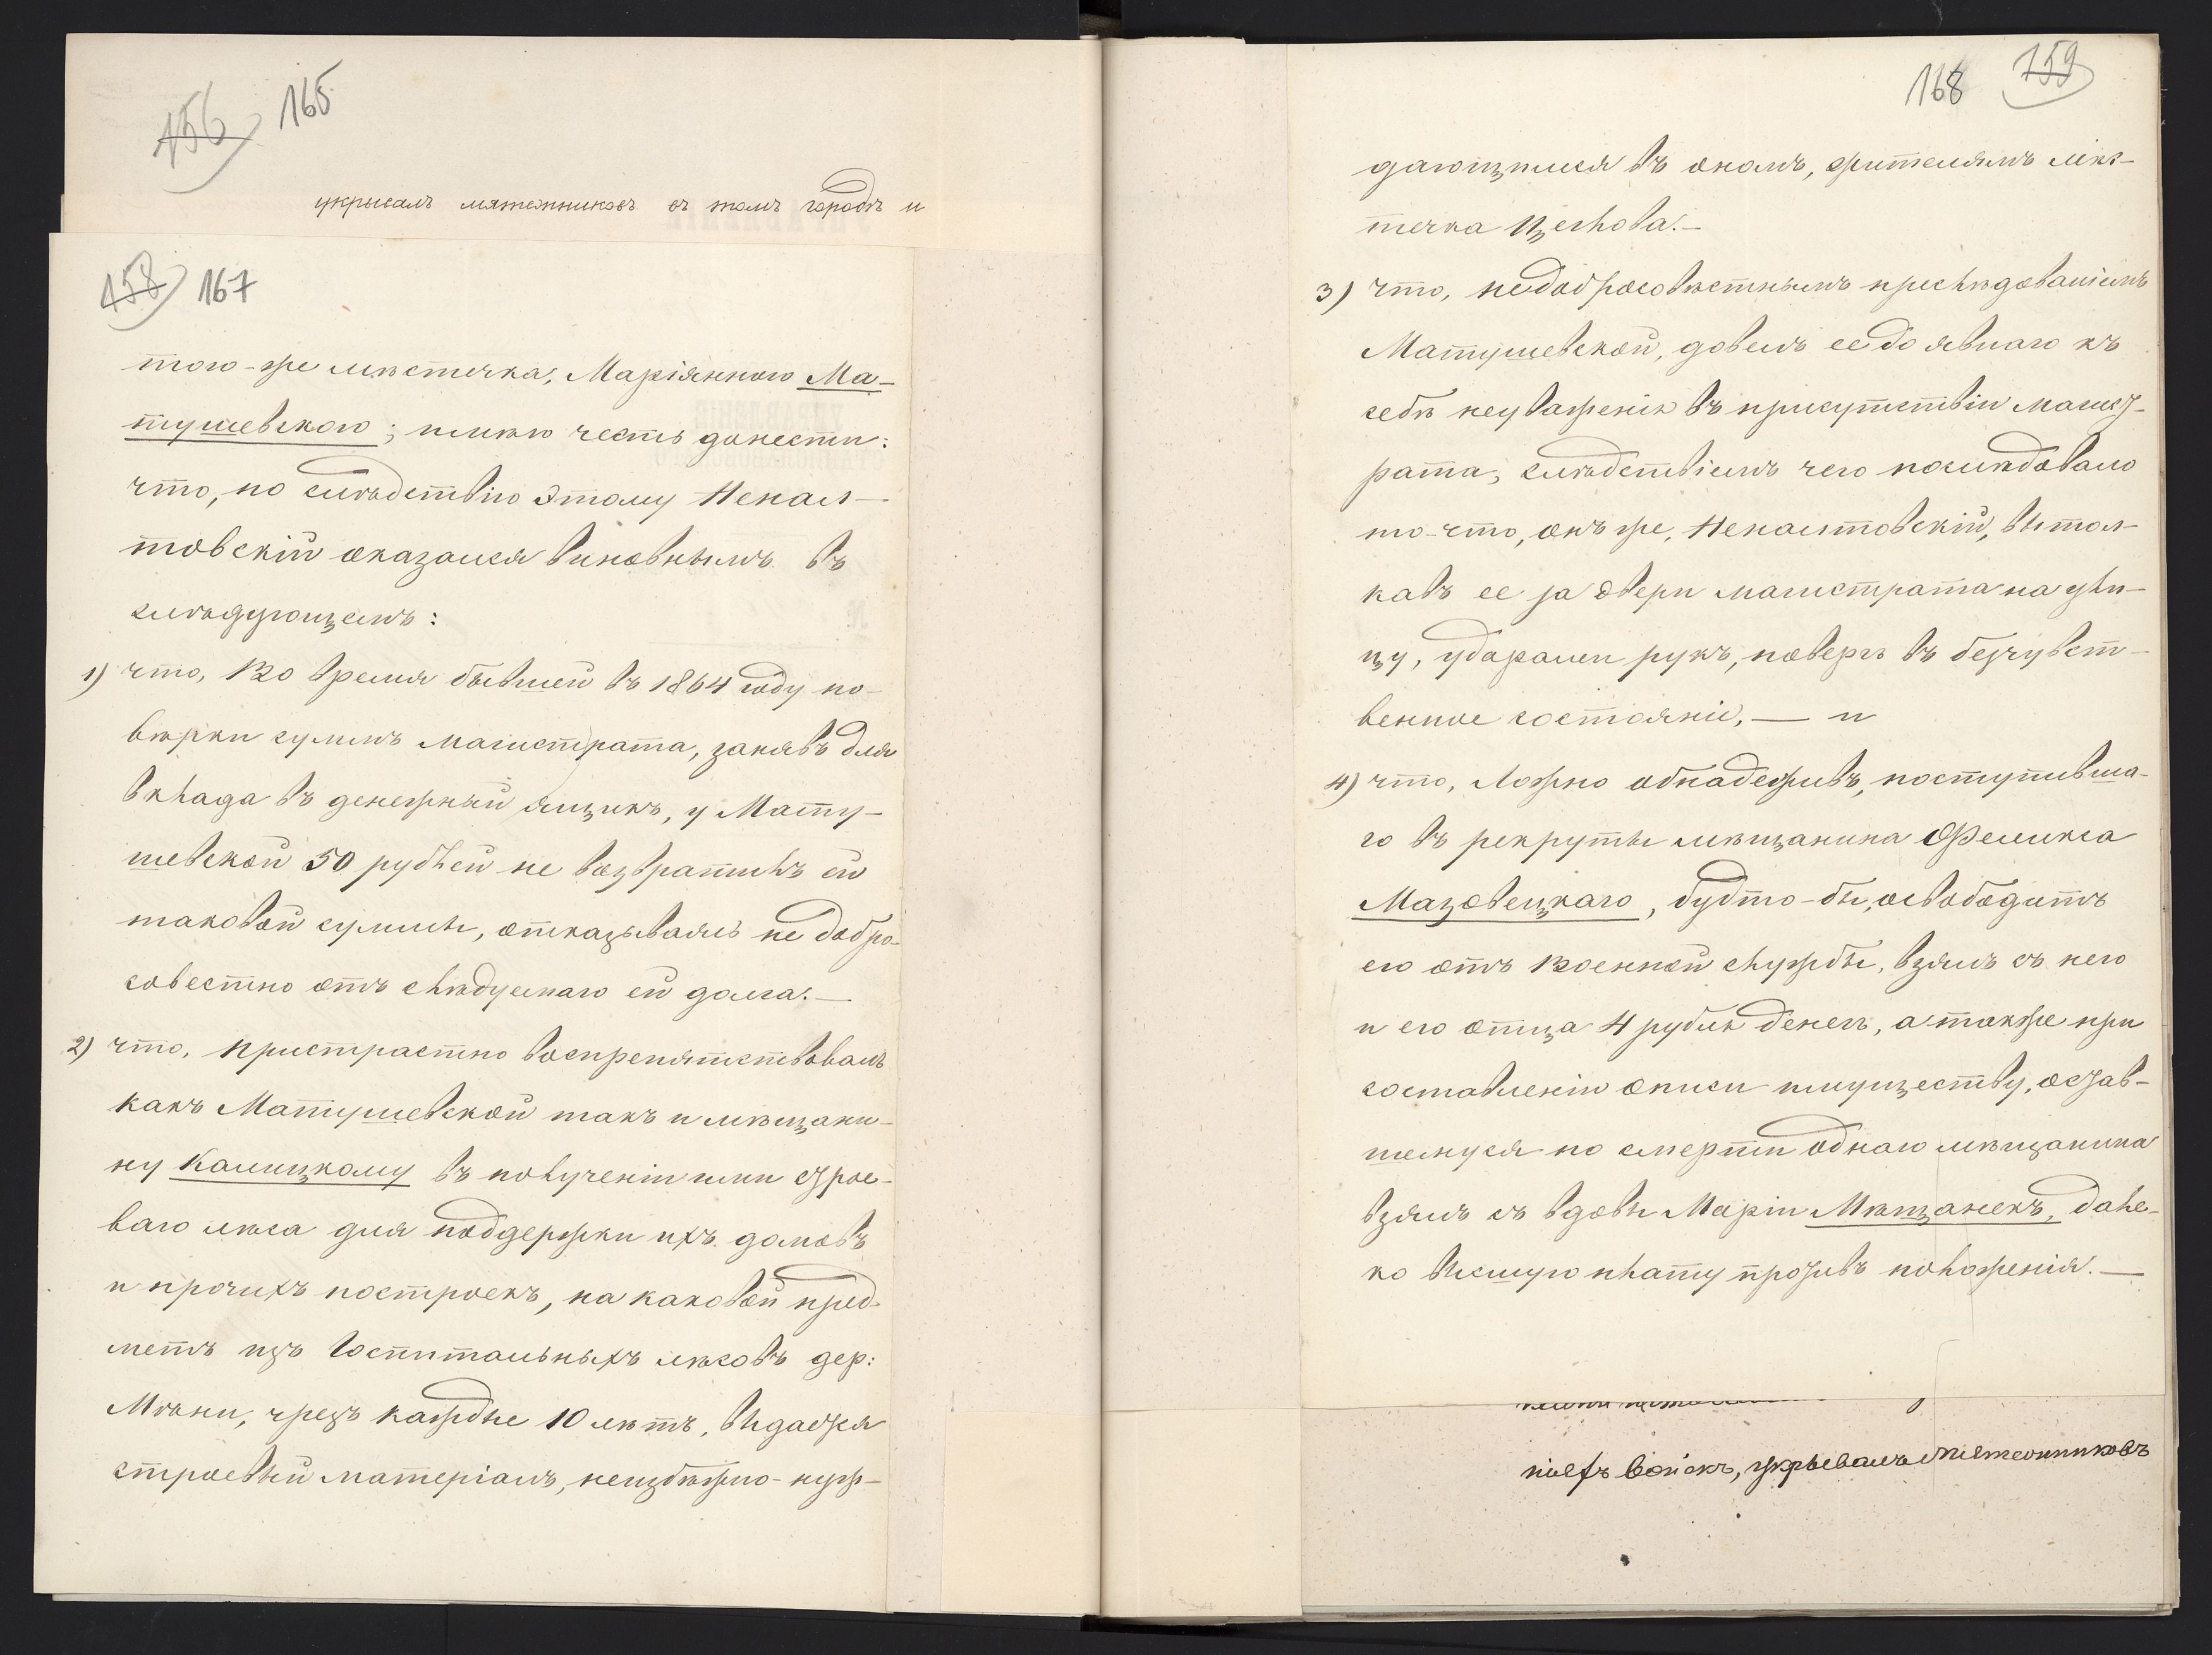 156 165
укрывалъ мятежниковъ въ томъ городѣ и
158 167
того-же мѣстечка, Маріянною Ма-
тушевскою; имѣю честь донести:
что, по слѣдствію этому Непал-
товскій оказался виновнымъ въ
слѣдующемъ:
1) что, во время бывшей въ 1864 году по-
вѣрки суммъ магистрата, занявъ для
вклада въ денежный ящикъ, у Мату-
шевской 50 рублей не возвратилъ ей
таковой суммы, отказываясь не добро-
совестно отъ слѣдуемаго ей долга.—
2) что, пристрастно воспрепятствовалъ
какъ Матушевской такъ и мѣщани-
ну Калицкому въ полученіи ими строе-
ваго лѣса для поддержки ихъ домовъ
и прочихъ построекъ, на каковой пред-
метъ изъ Госпитальныхъ лѣсовъ дер:
чрезъ каждые 10 лѣтъ, выдается
строевый матеріалъ, неизбѣжно-нуж-
168 159
дающимся въ ономъ, жителямъ мѣс-
течка
3) что, недобросовѣстнымъ преслѣдованіемъ
Матушевской, довелъ ее до явнаго къ
себѣ неуваженія въ присутствіи магист-
рата; слѣдствіемъ чего послѣдовало
то-что, онъ же, Непалтовскій, вытол-
кавъ ее за двери магистрата на ули-
цу, ударами рукъ, повергъ въ безчувст-
венное состояніе, — и
4) что, ложно обнадеживъ, поступивша-
го въ рекруты мѣщанина Феликса
Мазовецкаго, будто-бы, освободитъ
его отъ военной службы, взялъ съ него
и его отца 4 рубля денегъ, а также при
составленіи описи имуществу, остав-
шемуся по смерти однаго мѣщанина
взялъ съ вдовы Маріи Мѣщанекъ, дале-
ко высшую плату противъ положенія.—
войскъ, укрывалъ мятежниковъ